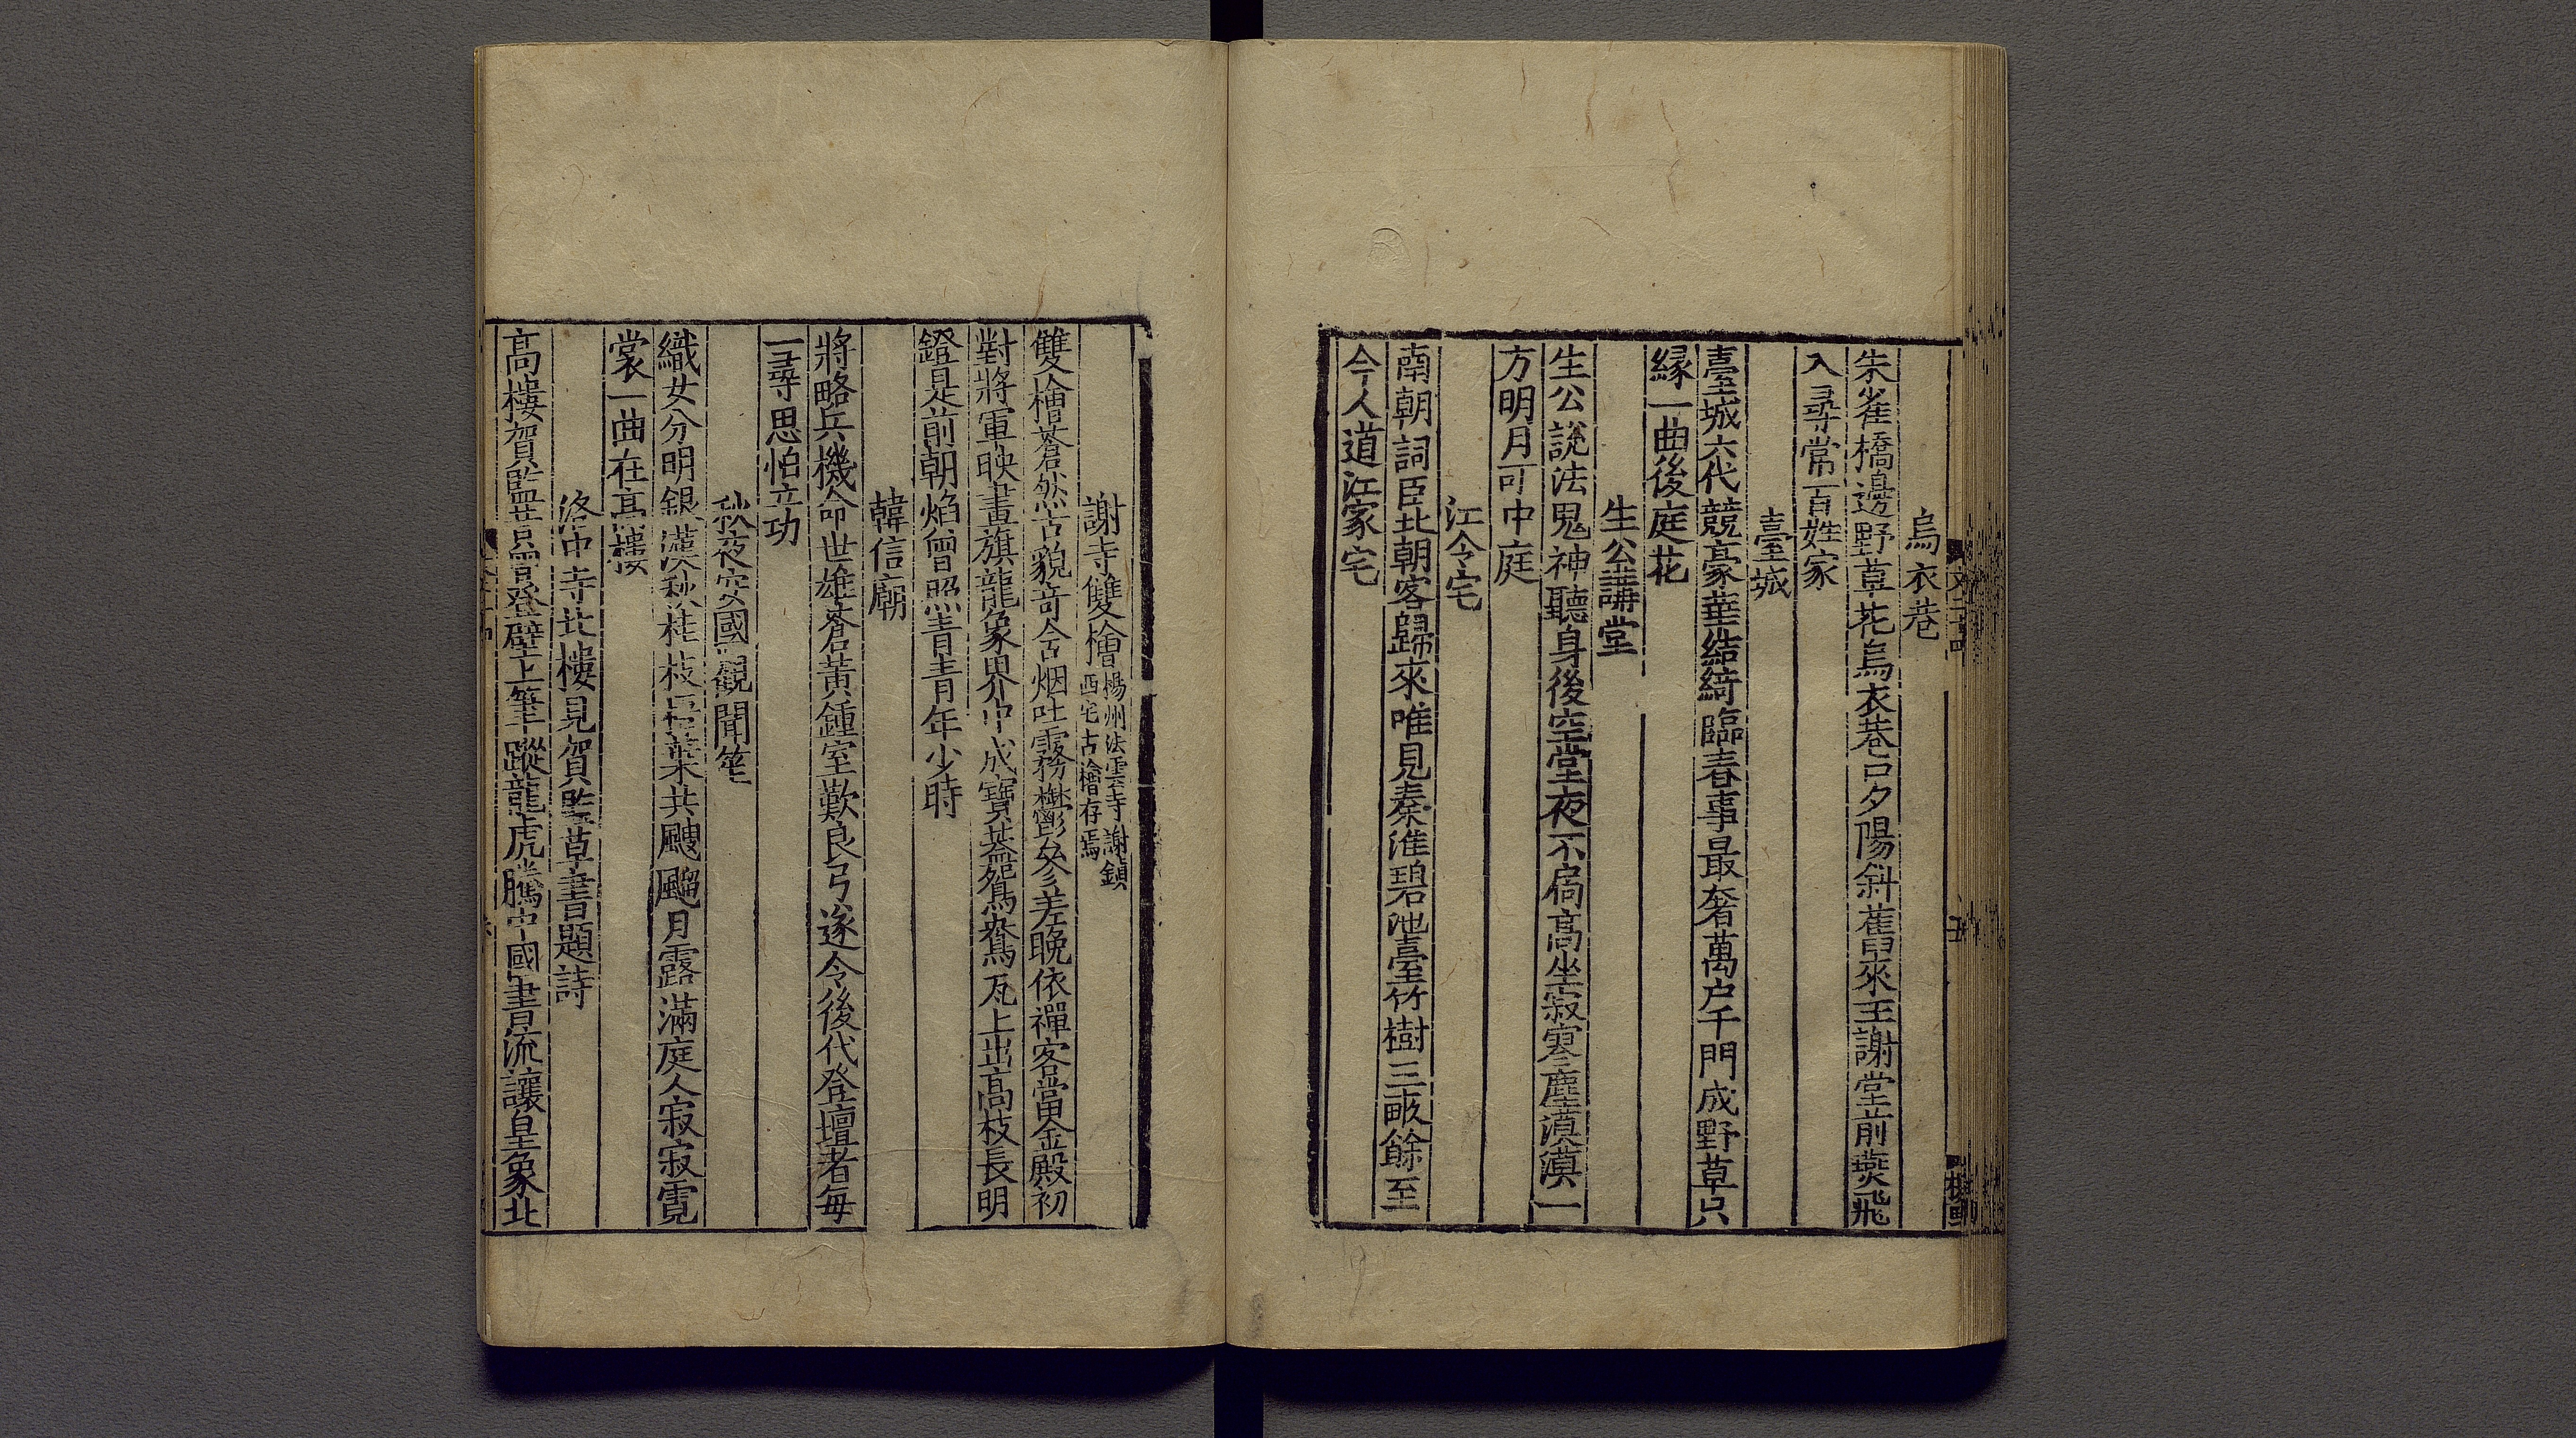 烏衣巷
朱雀橋邊野草花烏衣巷口夕陽斜舊來王謝堂前燕飛
入尋常百姓家
臺城
臺城六代競豪華結綺臨春事最奢萬户千門成野草只
縁一曲後庭花
生公講堂
生公說法鬼神聽身後空堂夜不扃高坐寂寥塵漠漠一
方明月可中庭
江令宅
南朝詞臣北朝客歸來唯見秦淮碧池臺竹樹三畝餘至
今人道江家宅
謝寺雙檜
楊州法雲寺謝鎮
西宅古檜存焉
雙檜蒼然古貌奇含烟吐霧鬱參差晩依禪客當金殿初
對將軍映畫旗龍象界中成寶蓋鴛鴦瓦上出高枝長明
鐙是前朝焰曾照青青年少時
韓信廟
將略兵機命世雄蒼黃鍾室歎良弓遂令後代登壇者每
一尋思怕立功
秋夜安國觀聞笙
織女分明銀漢秋桂枝梧葉共颼飀月露滿庭人寂寂霓
裳一曲在高樓
洛中寺北樓見賀監草書題詩
高樓賀監昔曾登壁上筆蹤龍虎騰中國書流讓皇象北